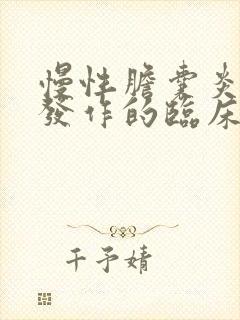 慢性膽囊炎
發作的臨床
千予婧